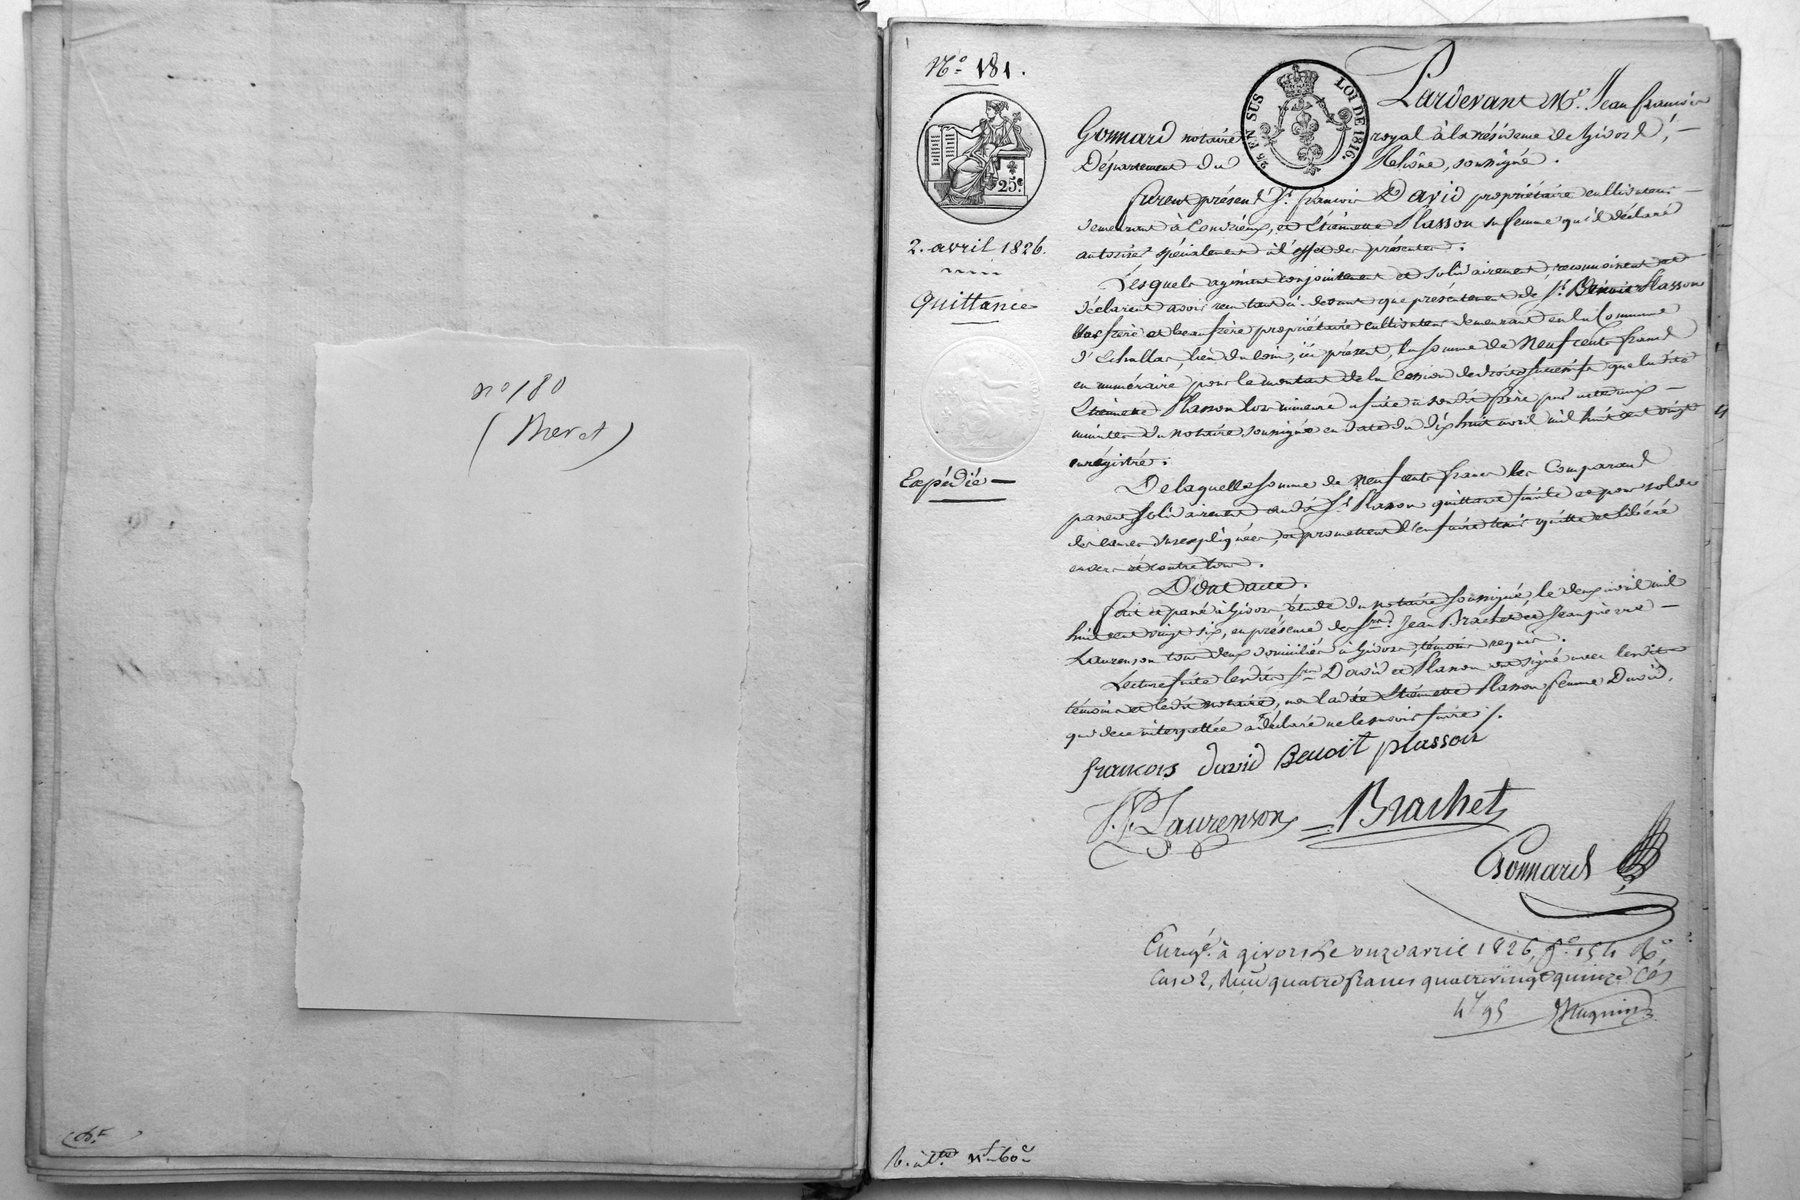 n° 180
(Meret)
N° 181.
25 EN SUS LOI DE 1816.
25c.
2. avril 1826.
Quittance
Expédié
Pardevant Me. Jean francois
Gonnard notaire royal à la résidence de Givors,
Département du Rhône, soussigné.
furent présent Sr. francois David propriétaire cultivateur
demeurant à Condrieux, et Etiennette Plasson sa femme qu'il déclare
autoriser spécialement à l'effet des présentes.
Lesquels agissant conjointement et solidairement, reconnoissent et
déclarent avoir reçu tant ci-devant que présentement de Sr. Benoit Plasson
frère et beau frère propriétaire cultivateur demeurant en la Commune
d'Echallas, lieu du coin, ici présent, la somme de Neuf cents francs
en numéraire, pour le montant de la Cession de droits que ladite
Etiennette Plasson lors mineure a faite à son dit frère par acte aux
minutes du notaire soussigné en date du dix huit avril mil huit cent vingt
enregistré.
De laquelle somme de Neuf cents francs les Comparants
passent solidairement audit Sr. Plasson quittance finale et pour solde
des causes susexpliquées, et promettent l'en faire tenir quitte et libéré
envers et contre tous.
Dont acte.
fait et passé à Givors étude du notaire soussigné, le deux avril mil
huit cent vingt six, en présence des Srs. Jean Brachet et Jean pierre
Laurenson tous deux domiciliés à Givors, témoins requis.
Lecture faite lesdits Srs David et Plasson ont signé avec lesdits
témoins et ledit notaire, non ladite Etiennette Plasson femme David,
qui de ce interpellée a déclaré ne le savoir faire /.
francois david Benoit plasson
J. P. Laurenson Brachet
Gonnard
Enregé. à givors le onze avril 1826, fo. 154 Ro,
Case 2, Reçu quatre francs quatrevingt quinze Ces
4f 95